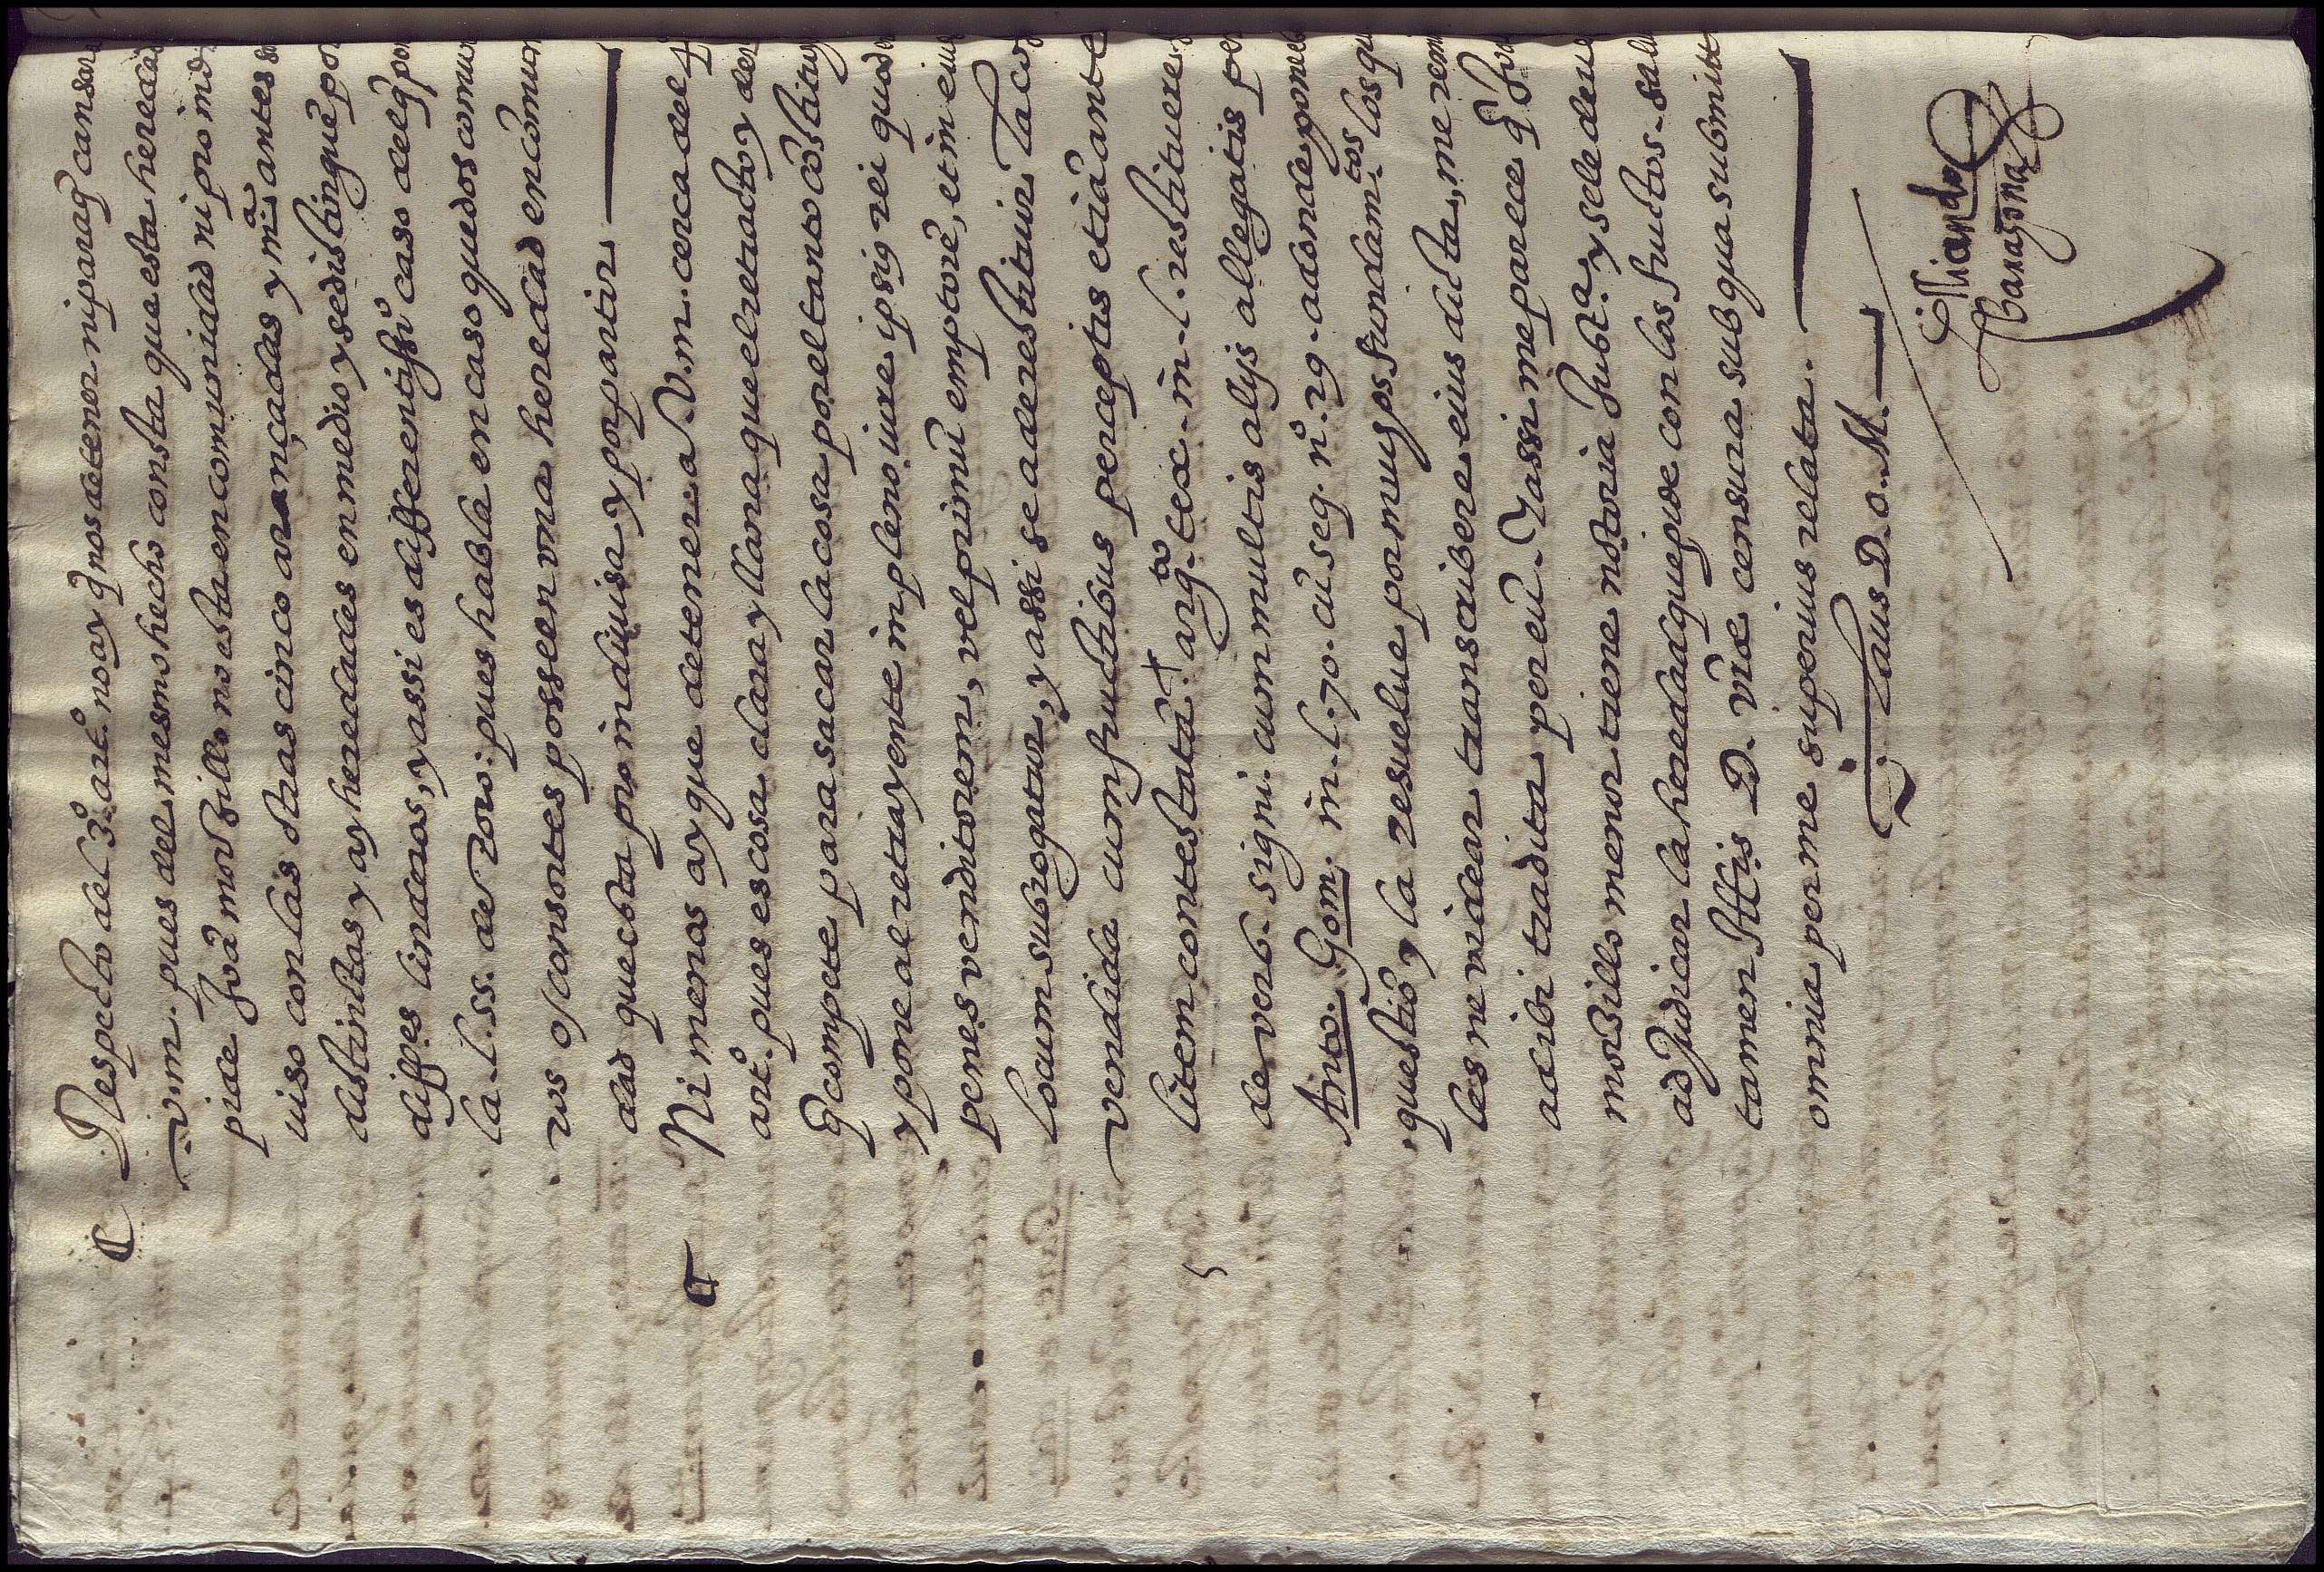 Respecto del 3.º art.º no ay q̃ nos detener ni para q̃ cansar
v.m. pues del mesmo hecho consta que esta heredad
pide Joã morsillo no esta en comunidad ni pro indi
uiso con las otras cinco arançadas y m.ª antes
distintas y ay heredades en medio y se distinguẽ por
differentes linderos, y assi es differentissº caso del q̃ pon
la l. 55. de Toro: pues habla en caso que dos comune
ros o consortes posseen vna heredad en comun
dad que esta pro indiuisa y por partir
Ni menos ay que detener a V.m. cerca del 4
art.º pues es cosa clara y llana que el retracto y der
q̃ compete para sacar la cosa por el tanto cõstituy
y pone al retrayente in pleno iure ipsiq rei quod er
penes venditorem, vel primũ emptorẽ, et in eius
locum subrogatur, y assi se a de restituir la cos
vendida cum fructibus perceptis etiã ante
litem contestatã. arg.to tex. in. l. restituere
de verb. signi. cum multis alijs allegatis per
Anto. Gom. in. l. 70. cũ seq. nº. 29. adonde pone
questiõ y la resuelue por muchos fundam.tos los qu
les ne videar transcribere eius dicta, me remi
ad ibi tradita per eũ. Y assi me parece q̃ Juº
morsillo menor tiene notoria Just.ª y se le deue
adJudicar la heredad que pide con los fructos. salu
tamen Illis D. vrẽ censura sub qua submitt
omnia per me superius relata.
Laus D. O. M.
Barasona